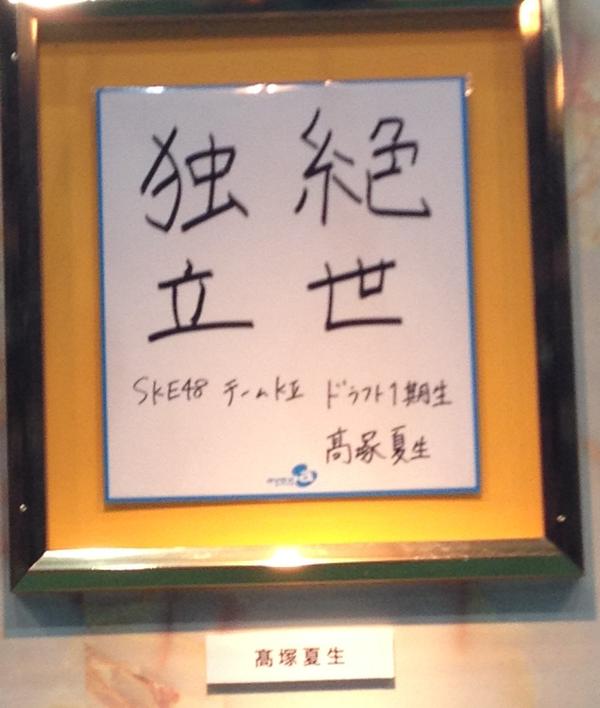 絶世
独立
SKE48 チームKⅡ ドラフト1期生
髙塚夏生
髙塚夏生